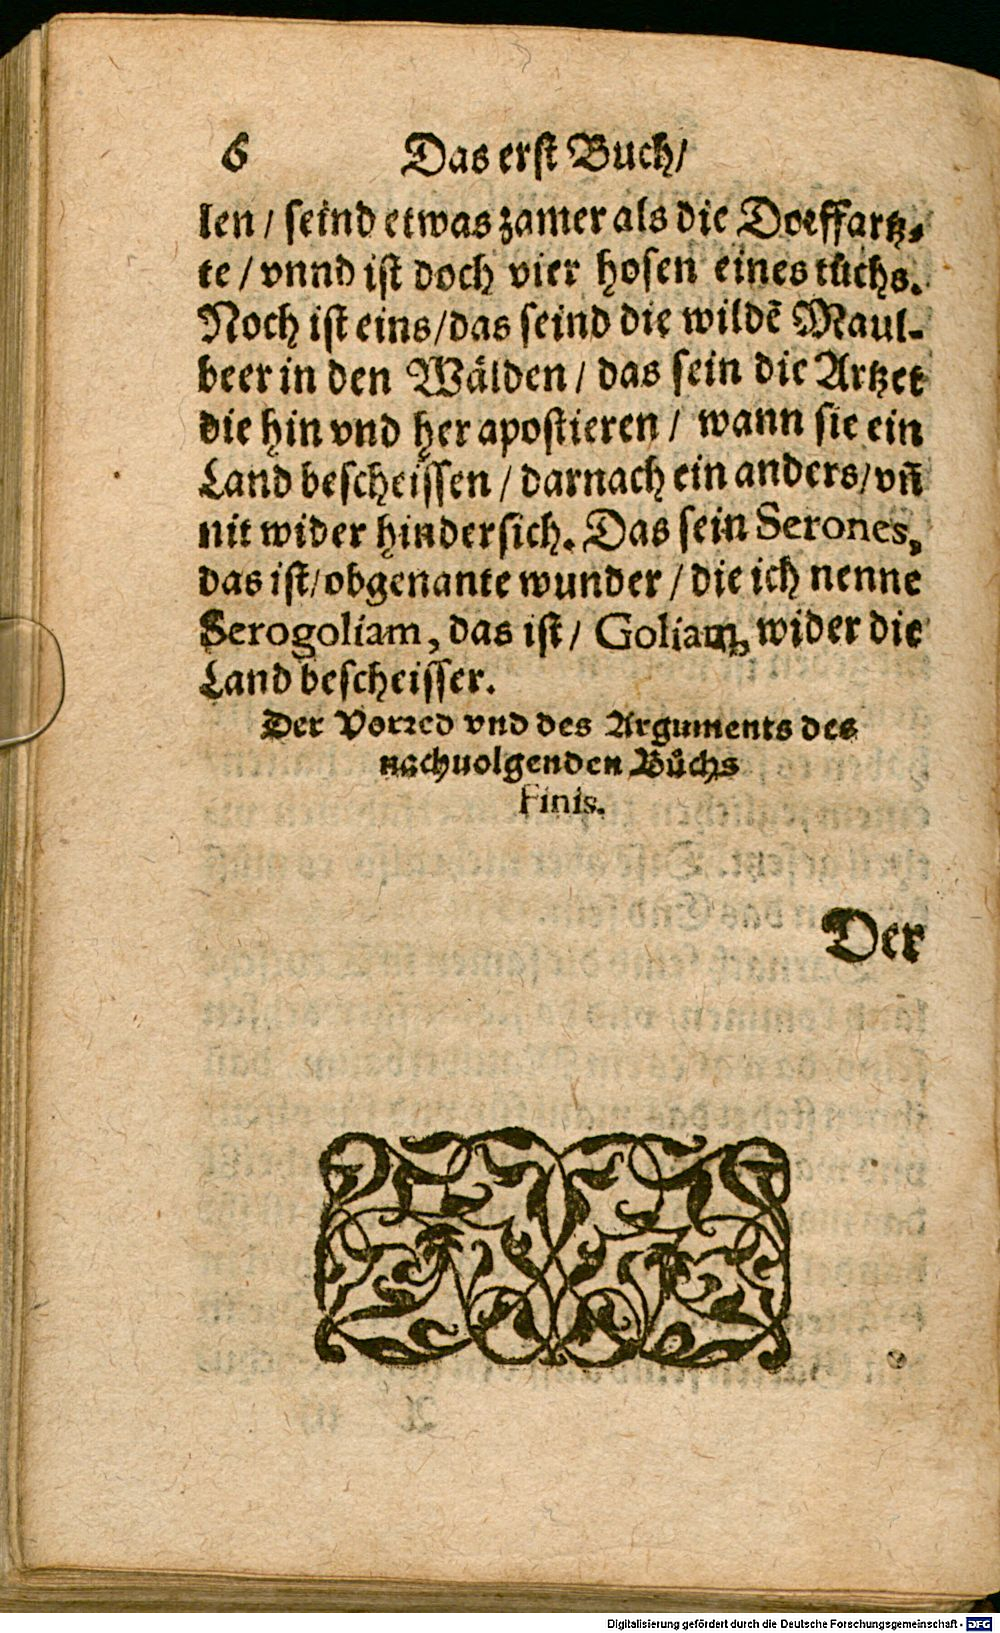 6 Das erst Buch/
len / seind etwas zamer als die Dorffartz⸗
te / vnnd ist doch vier hosen eines tůchs.
Noch ist eins/das seind die wildē Maul-
beer in den Wälden / das sein die Artzet
die hin vnd her apostieren / wann sie ein
Land bescheissen / darnach ein anders/vñ
nit wider hindersich. Das sein Serones,
das ist/obgenante wunder / die ich nenne
Serogoliam, das ist/ Goliam, wider die
Land bescheisser.
Der Vorred vnd des Arguments des
nachuolgenden Bůchs
Finis.
Der
Digitalisierung gefördert durch die Deutsche Forschungsgemeinschaft - DFG